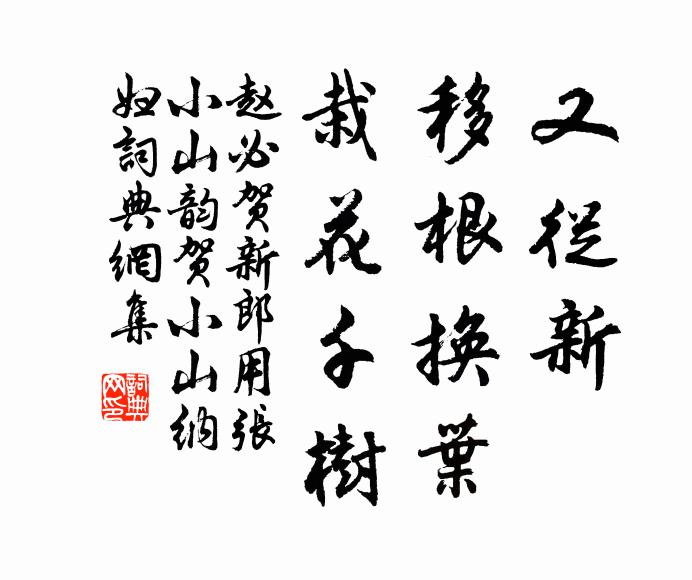 又從新
移根換葉
栽花千樹
赵必贺新郎用張
小山韵贺小山納
妞詞典網集
詞典网印